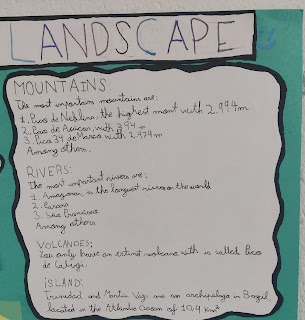 LANDSCAPE
MOUNTAINS
The most importans mountains are:
1. Pico de Neblina, the highest mont with 2.994m
2. Pao de Azucar, with 394 m
3. Pico 31 de Marco with 2.974m
Among others.
RIVERS:
The most important rivers are:
1. Amazonas, is the longest river on the world
2. Paraná
3. Sao Francisco
Among others
VOLCANOES:
You only have an extint volcano with is called Pico
de Cabugi.
ISLAND:
Trinidad and Martin Vaz are an archipielago in Brazil
located in the Atlantic Ocean of 10,4 km²